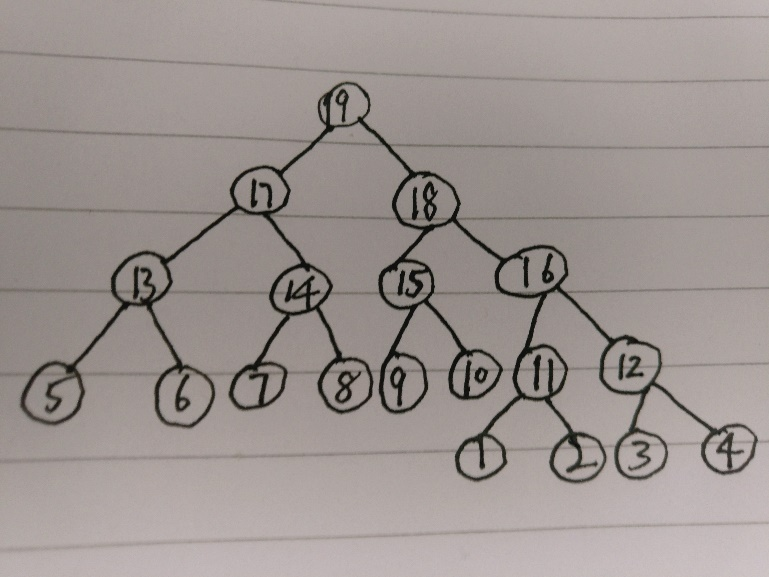 19
17 18
13 14 15 16
5 6 7 8 9 10 11 12
1 2 3 4